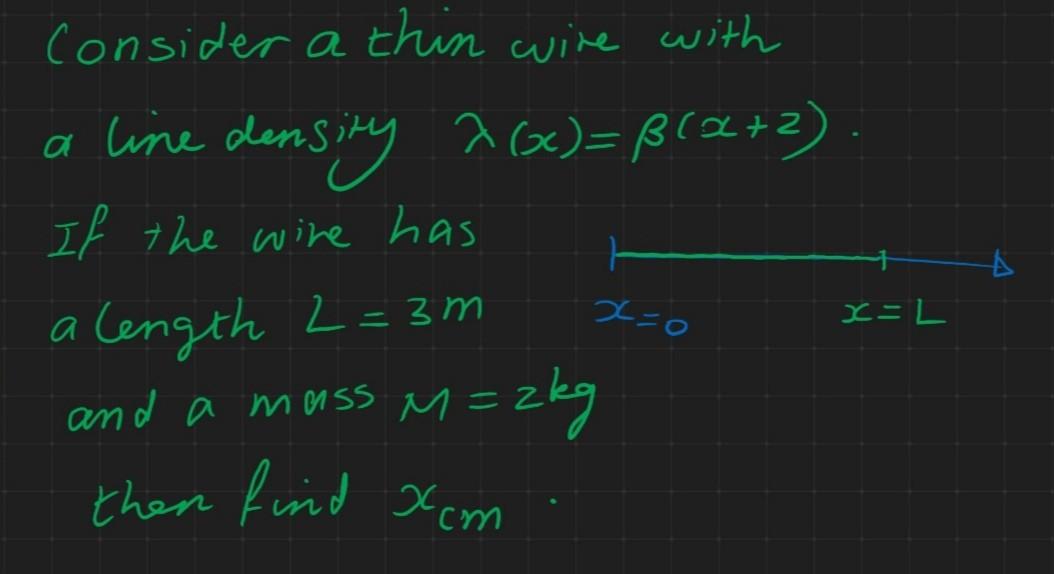 Consider a thin wire with
a line density λ(x)=β(x+2).
If the wire has
x=0 x=L
a length L=3m
and a mass M=2kg
then find xcm.